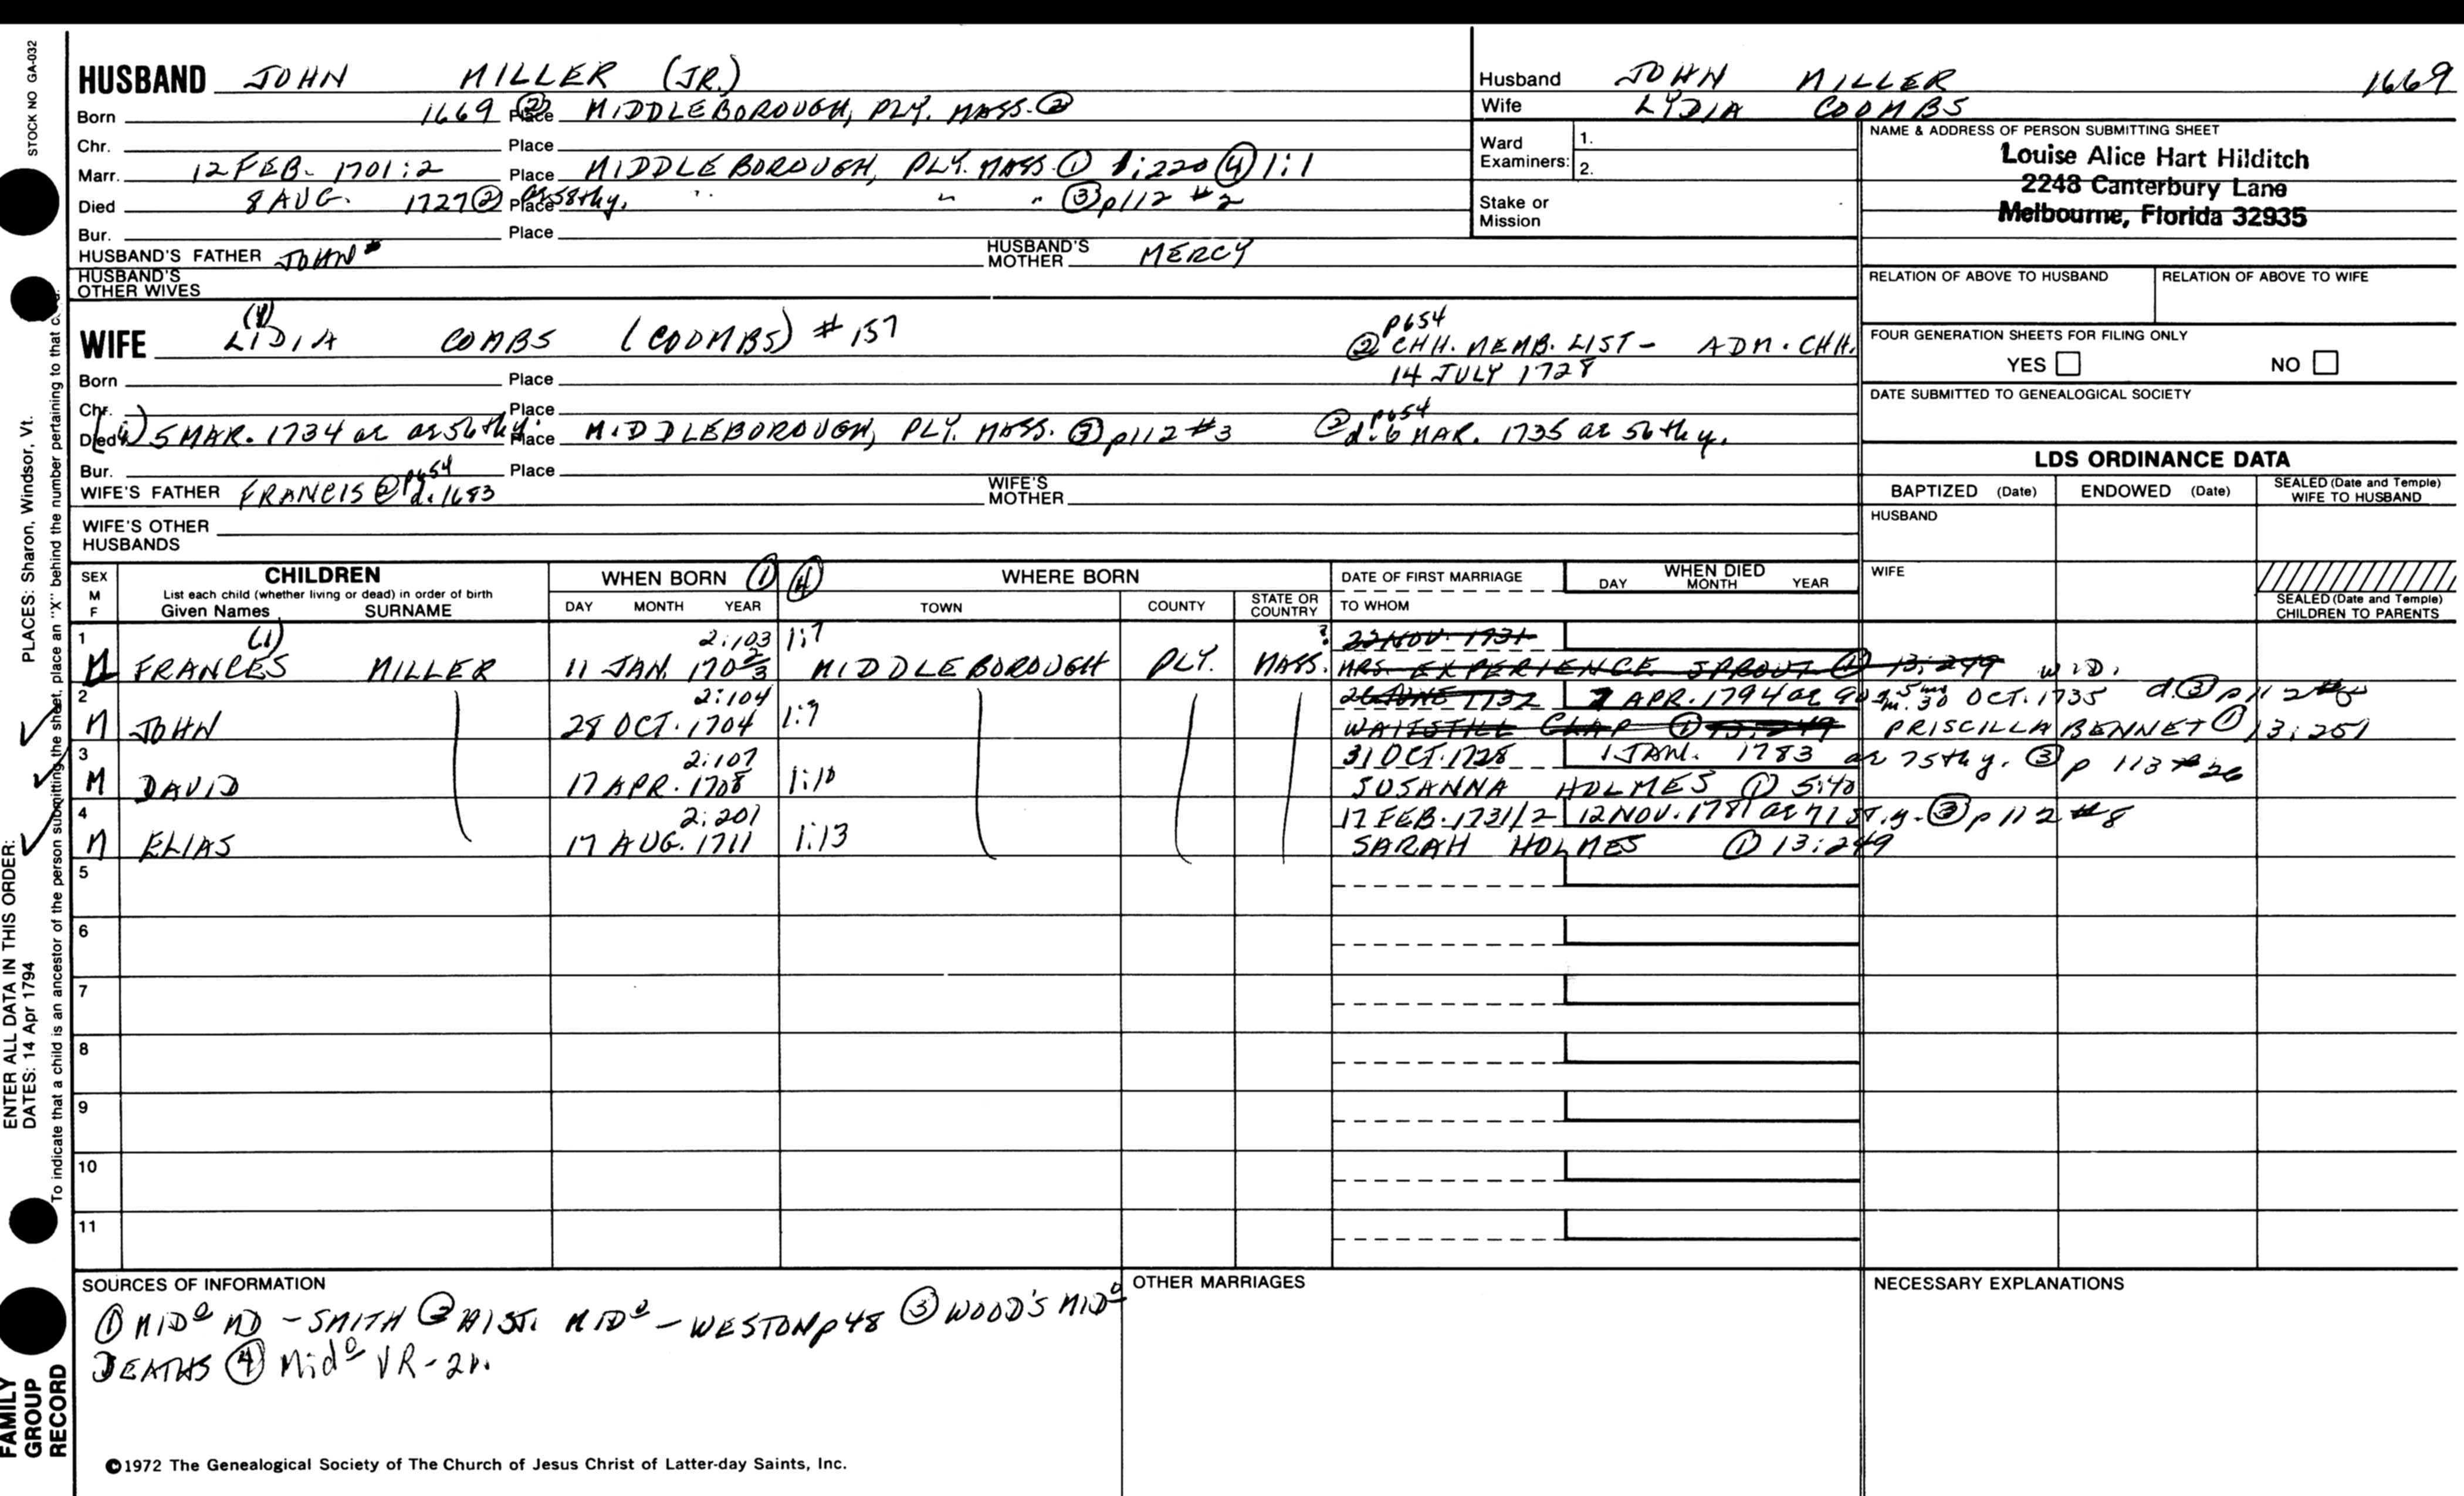 STOCK NO GA-032
HUSBAND JOHN MILLER (JR.)
Born 1669 ② Place MIDDLEBOROUGH, PLY. MASS. ②
Chr. Place
Marr. 12 FEB. 1701:2 Place MIDDLEBOROUGH, PLY. MASS. ① 1:220 ④ 1:1
Died 8 AUG. 1727 ② Place 58thy. " " " ③ p112 #2
Bur. Place
HUSBAND'S FATHER JOHN HUSBAND'S MOTHER MERCY
HUSBAND'S OTHER WIVES
Husband JOHN MILLER 1669
Wife LYDIA COOMBS
Ward Examiners: 1.
2.
Stake or Mission
NAME & ADDRESS OF PERSON SUBMITTING SHEET
Louise Alice Hart Hilditch
2248 Canterbury Lane
Melbourne, Florida 32935
RELATION OF ABOVE TO HUSBAND RELATION OF ABOVE TO WIFE
FOUR GENERATION SHEETS FOR FILING ONLY
YES NO
DATE SUBMITTED TO GENEALOGICAL SOCIETY
(Y)
WIFE LIDIA COMBS (COOMBS) #157
p654
② CHH. MEMB. LIST - ADM. CHH.
14 JULY 1728
Born Place
Chr. Place
Died (4) 5 MAR. 1734 ae 56thy. Place MIDDLEBOROUGH, PLY. MASS. ③ p112 #3 ② p654 d. 6 MAR. 1735 ae 56thy.
Bur. Place
WIFE'S FATHER FRANCIS ② p654 d. 1683 WIFE'S MOTHER
WIFE'S OTHER HUSBANDS
LDS ORDINANCE DATA
BAPTIZED (Date) ENDOWED (Date) SEALED (Date and Temple) WIFE TO HUSBAND
HUSBAND
WIFE
SEALED (Date and Temple) CHILDREN TO PARENTS
SEX M F
CHILDREN
List each child (whether living or dead) in order of birth
Given Names SURNAME
WHEN BORN ① ④
DAY MONTH YEAR
WHERE BORN
TOWN COUNTY STATE OR COUNTRY
DATE OF FIRST MARRIAGE
TO WHOM
WHEN DIED
DAY MONTH YEAR
1 (i) 2:103 1:7 ? 22 NOV. 1731
M FRANCES MILLER 11 JAN. 1702/3 MIDDLEBOROUGH PLY. MASS. MRS. EXPERIENCE SPROUT ① 13:249 WID.
2 2:104 26 JUNE 1732 7 APR. 1794 ae 90 y. 5 m. m. 30 OCT. 1735 d. ③ p112
M JOHN 28 OCT. 1704 1:9 WAITSTILL CLAP ① 13:249 PRISCILLA BENNET ① 13:251
3 2:107 31 OCT. 1728 1 JAN. 1783 ae 75thy. ③ p 113 #26
M DAVID 17 APR. 1708 1:10 SUSANNA HOLMES ① 5:40
4 2:201 17 FEB. 1731/2 12 NOV. 1781 ae 71st.y. ③ p112 #8
M ELIAS 17 AUG. 1711 1:13 SARAH HOLMES ① 13:249
5
6
7
8
9
10
11
SOURCES OF INFORMATION
① MIDo MD - SMITH ② HIST. MIDo - WESTON p48 ③ WOOD'S MIDo
DEATHS ④ Mido VR - 2v.
OTHER MARRIAGES
NECESSARY EXPLANATIONS
©1972 The Genealogical Society of The Church of Jesus Christ of Latter-day Saints, Inc.
PLACES: Sharon, Windsor, Vt.
ENTER ALL DATA IN THIS ORDER:
DATES: 14 Apr 1794
To indicate that a child is an ancestor of the person submitting the sheet, place an "X" behind the number pertaining to that
FAMILY
GROUP
RECORD